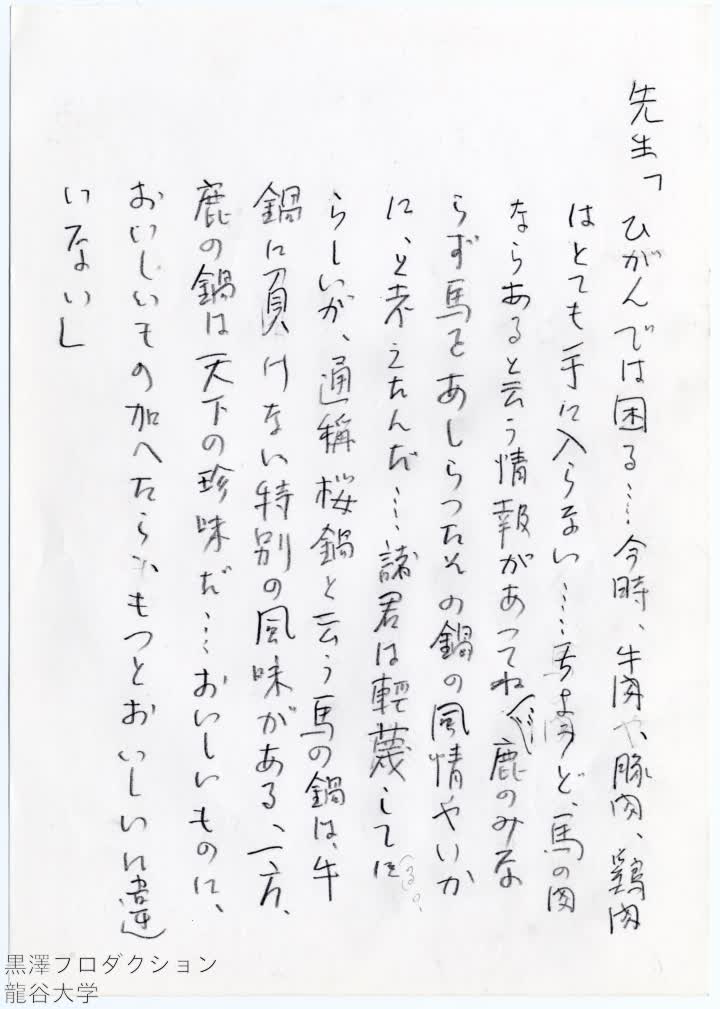 先生「ひがんでは困る…今時、牛肉や、豚肉、鶏肉
はとても手に入らない……ど、馬の肉
ならあると云う情報があってね…鹿のみな
らず馬をあしらったその鍋の風情やいか
に、と考えたんだ…諸君は軽蔑して
らしいが、通称桜鍋と云う馬の鍋は、牛
鍋に負けない特別の風味がある、一方、
鹿の鍋は天下の珍味だ…おいしいものに、
おいしいもの加へたらもつとおいしいに違
いない」
黒澤プロダクション
龍谷大学